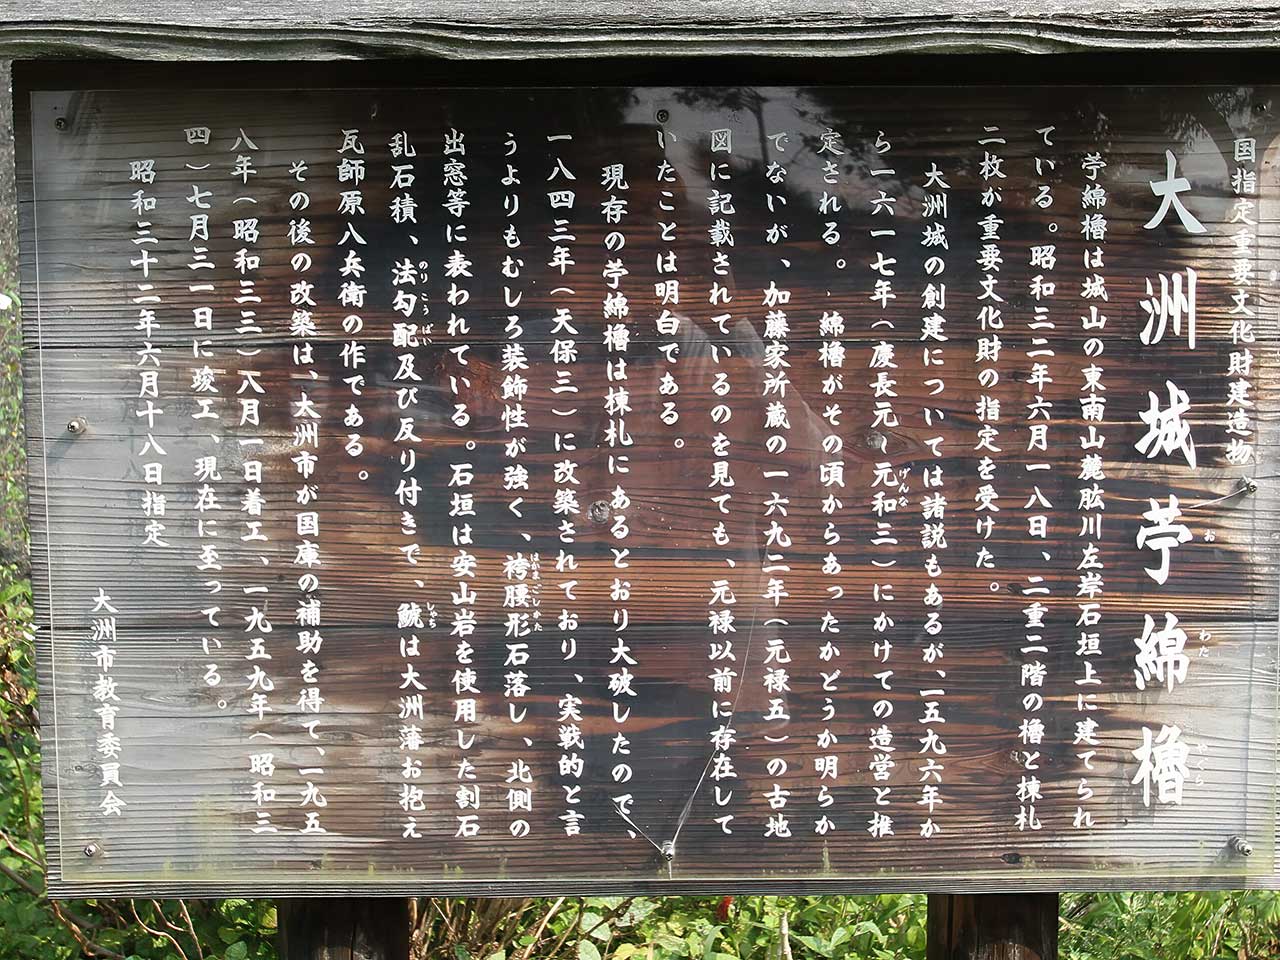 国指定重要文化財建造物
大洲城苧綿櫓
お わた やぐら
苧綿櫓は城山の東南山麓肱川左岸石垣上に建てられ
ている。昭和三二年六月一八日、二重二階の櫓と棟札
二枚が重要文化財の指定を受けた。
大洲城の創建については諸説もあるが、一五九六年か
ら一六一七年(慶長元~元和三)にかけての造営と推
げんな
定される。綿櫓がその頃からあったかどうか明らか
でないが、加藤家所蔵の一六九二年(元禄五)の古地
図に記載されているのを見ても、元禄以前に存在して
いたことは明白である。
現存の苧綿櫓は棟札にあるとおり大破したので、
一八四三年(天保三)に改築されており、実戦的と言
うよりもむしろ装飾性が強く、袴腰形石落し、北側の
はかまごしかた
出窓等に表われている。石垣は安山岩を使用した割石
乱石積、法勾配及び反り付きで、鯱は大洲藩お抱え
のりこうばい しゃち
瓦師原八兵衛の作である。
その後の改築は、大洲市が国庫の補助を得て、一九五
八年(昭和三三)八月一日着工、一九五九年(昭和三
四)七月三一日に竣工、現在に至っている。
昭和三十二年六月十八日指定
大洲市教育委員会